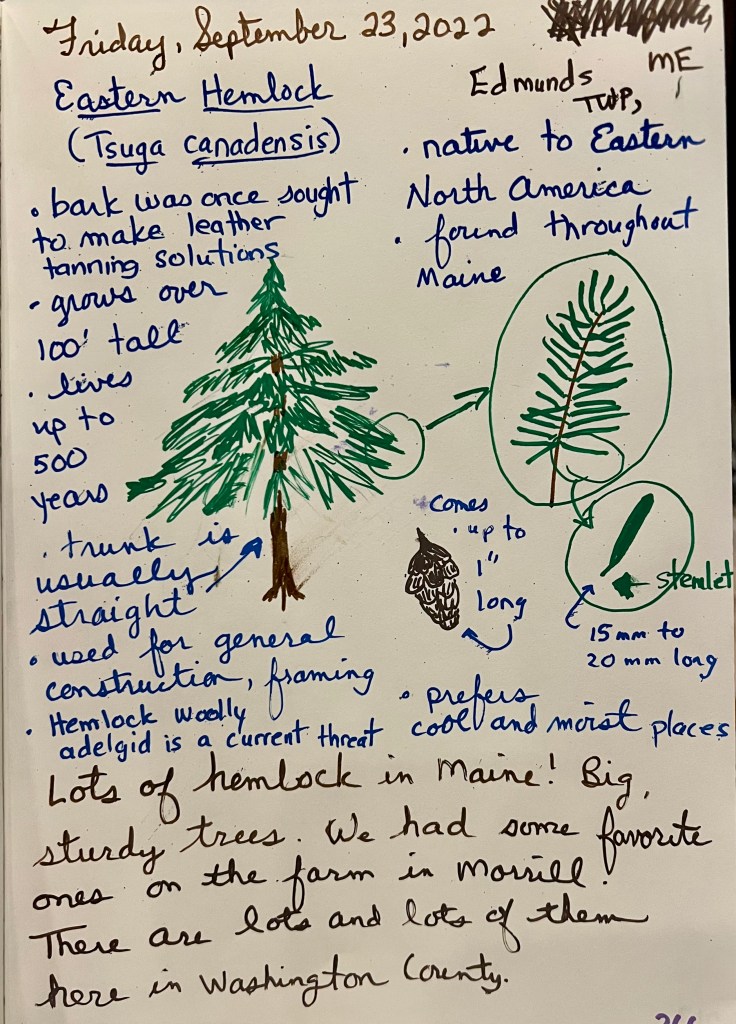 Friday, September 23, 2022
Edmunds
TWP,
ME
Eastern Hemlock
(Tsuga canadensis)
• bark was once sought
to make leather
tanning solutions
• grows over
100' tall
• lives
up to
500
years
• native to Eastern
North America
• found throughout
Maine
• trunk is
usually
straight
comes
• up to
1"
long
stemlet
15mm to
20 mm long
• used for general
construction, framing
• Hemlock woolly
adelgid is a current threat
• prefers
cool and moist places
Lots of hemlock in Maine! Big,
sturdy trees. We had some favorite
ones on the farm in Morrill.
There are lots and lots of them
here in Washington County.